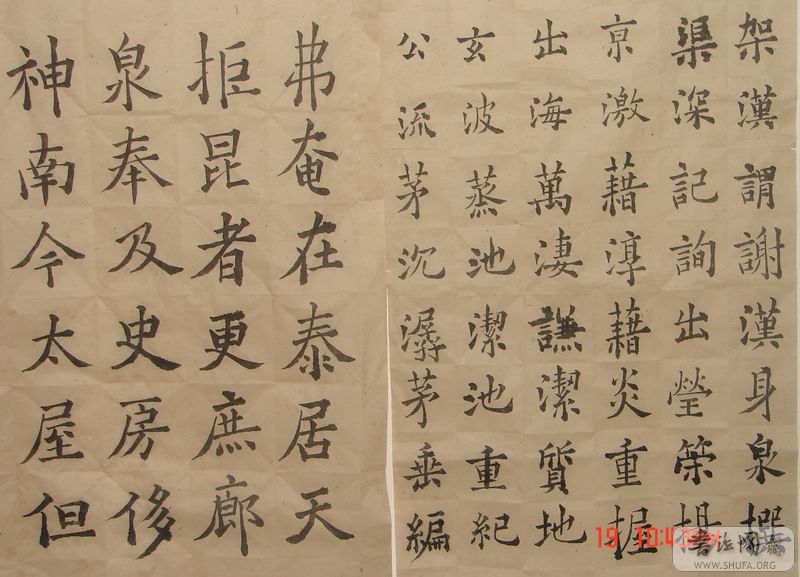 架漢謂謝漢身泉
渠深記詢出瑩築
亰激藉淳藉炎重握
出海萬淒謙潔質地
玄波蒸池潔池重紀
公流茅沉潺茅垂編
弗奄在泰居天
拒昆者更庶廊
泉奉及史房侈
神南今太屋但
19 10:4
WWW.SHUFA.ORG